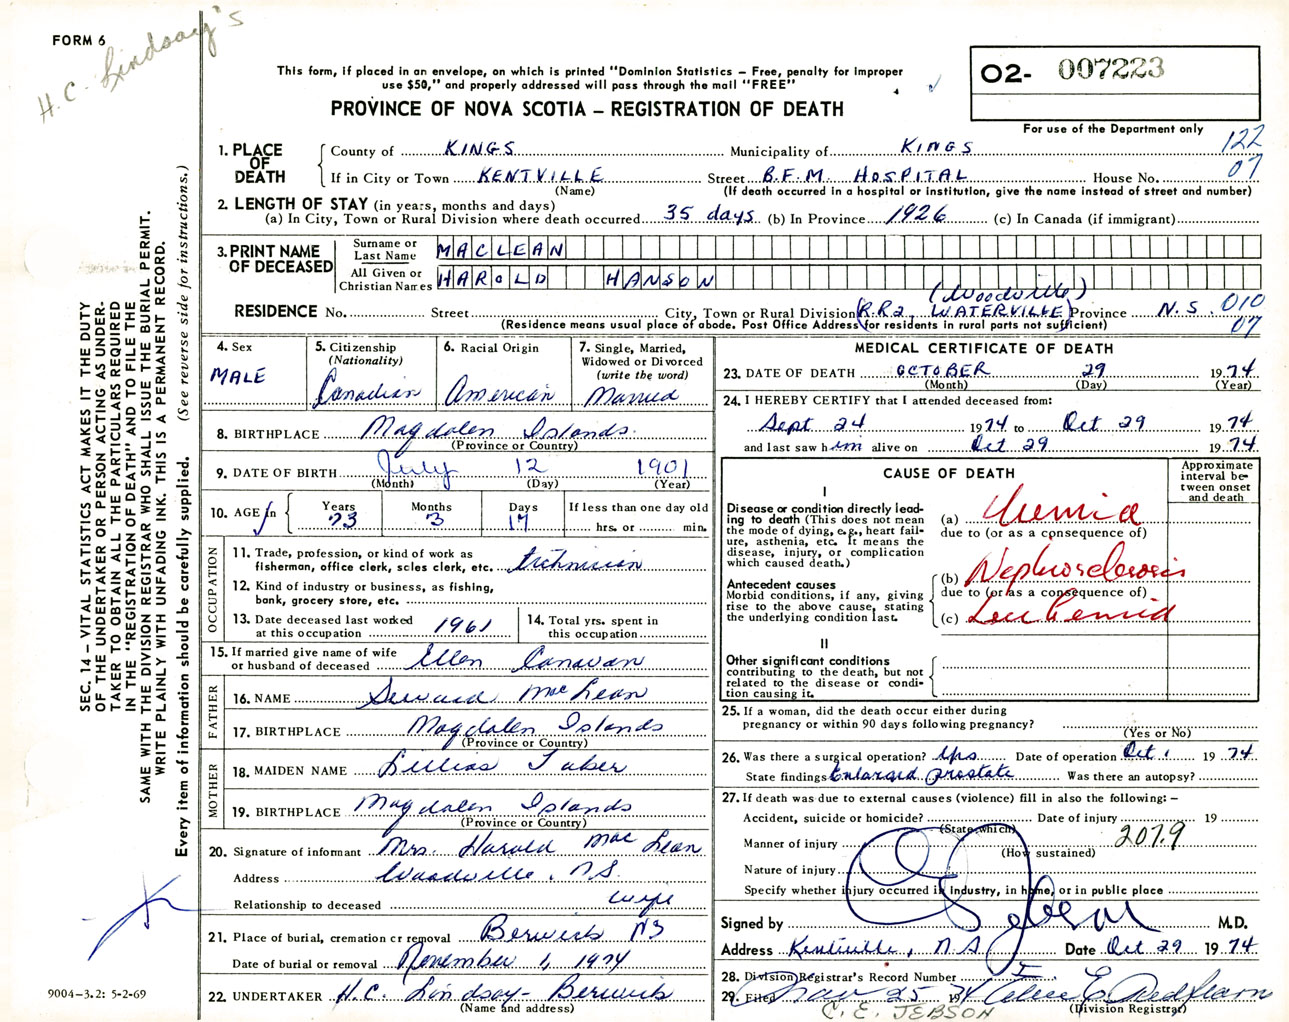 FORM 6
H.C. Lindsay's
This form, if placed in an envelope, on which is printed "Dominion Statistics – Free, penalty for improper
use $50," and properly addressed will pass through the mail "FREE"
PROVINCE OF NOVA SCOTIA – REGISTRATION OF DEATH
O2- 007223
For use of the Department only
122
07
1. PLACE OF DEATH
County of KINGS Municipality of KINGS
If in City or Town KENTVILLE Street B.F.M. HOSPITAL House No.
(Name) (If death occurred in a hospital or institution, give the name instead of street and number)
2. LENGTH OF STAY (in years, months and days)
(a) In City, Town or Rural Division where death occurred 35 days (b) In Province 1926 (c) In Canada (if immigrant)
3. PRINT NAME OF DECEASED
Surname or Last Name MACLEAN
All Given or Christian Names HAROLD HANSON
(Woodville)
RESIDENCE No. Street City, Town or Rural Division (R.R2, WATERVILLE) Province N.S. 010
07
(Residence means usual place of abode. Post Office Address for residents in rural parts not sufficient)
4. Sex MALE
5. Citizenship (Nationality) Canadian
6. Racial Origin American
7. Single, Married, Widowed or Divorced (write the word) Married
8. BIRTHPLACE Magdalen Islands
(Province or Country)
9. DATE OF BIRTH July 12 1901
(Month) (Day) (Year)
10. AGE in Years 73 Months 3 Days 17 If less than one day old hrs. or min.
OCCUPATION
11. Trade, profession, or kind of work as
fisherman, office clerk, scles clerk, etc. technician
12. Kind of industry or business, as fishing,
bank, grocery store, etc.
13. Date deceased last worked
at this occupation 1961
14. Total yrs. spent in
this occupation
15. If married give name of wife
or husband of deceased Ellen Canavan
FATHER
16. NAME Seward MacLean
17. BIRTHPLACE Magdalen Islands
(Province or Country)
MOTHER
18. MAIDEN NAME Lillias Taker
19. BIRTHPLACE Magdalen Islands
(Province or Country)
20. Signature of informant Mrs. Harold MacLean
Address Woodville, N.S.
Relationship to deceased wife
21. Place of burial, cremation cr removal Berwick NS
Date of burial or removal November 1, 1974
22. UNDERTAKER H.C. Lindsay - Berwick
(Name and address)
MEDICAL CERTIFICATE OF DEATH
23. DATE OF DEATH OCTOBER 29 1974
(Month) (Day) (Year)
24. I HEREBY CERTIFY that I attended deceased from:
Sept 24 1974 to Oct 29 1974
and last saw him alive on Oct 29 1974
CAUSE OF DEATH
Approximate interval between onset and death
I
Disease or condition directly lead-
ing to death (This does not mean
the mode of dying, e.g., heart fail-
ure, asthenia, etc. It means the
disease, injury, or complication
which caused death.)
(a) Uremia
due to (or as a cpnsequence of)
Antecedent causes
Morbid conditions, if any, giving
rise to the above cause, stating
the underlying condition last.
(b) Nephrosclerosis
due to (or as a consequence of)
(c) Leukemia
II
Other significant conditions
contributing to the death, but not
related to the disease or condi-
tion causing it.
25. If a woman, did the death occur either during
pregnancy or within 90 days following pregnancy?
(Yes or No)
26. Was there a surgical operation? yes Date of operation Oct. 1 1974
State findings Enlarged prostate Was there an autopsy?
27. If death was due to external causes (violence) fill in also the following: –
Accident, suicide or homicide? Date of injury 19
(State which)
2079
Manner of injury
(How sustained)
Nature of injury
Specify whether injury occurred in Industry, in home, or in public place
Signed by C E Jebson M.D.
Address Kentville, N.S. Date Oct 29 1974
28. Division Registrar's Record Number
29. Filed Nov 25 1974
(Division Registrar)
C. E. JEBSON
SEC. 14 – VITAL STATISTICS ACT MAKES IT THE DUTY
OF THE UNDERTAKER OR PERSON ACTING AS UNDER-
TAKER TO OBTAIN ALL THE PARTICULARS REQUIRED
IN THE "REGISTRATION OF DEATH" AND TO FILE THE
SAME WITH THE DIVISION REGISTRAR WHO SHALL ISSUE THE BURIAL PERMIT.
WRITE PLAINLY WITH UNFADING INK. THIS IS A PERMANENT RECORD.
Every item of information should be carefully supplied. (See reverse side for instructions.)
9004-3.2: 5-2-69